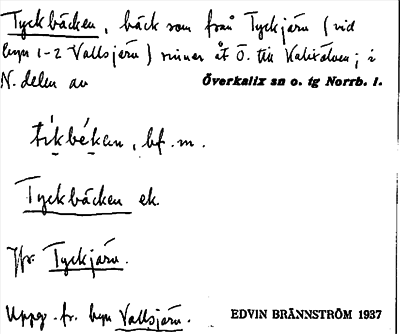 Tyckbäcken, bäck som från Tyckjärn (vid
byn 1-2 Vallsjärv) rinner åt Ö. till Kalixälven; i
N. delen av Överkalix sn o. tg Norrb. l.
tìkbékan, bf. m.
Tyckbäcken ek.
Jfr Tyckjärn.
Uppg. fr. byn Vallsjärv.
EDVIN BRÄNNSTRÖM 1937